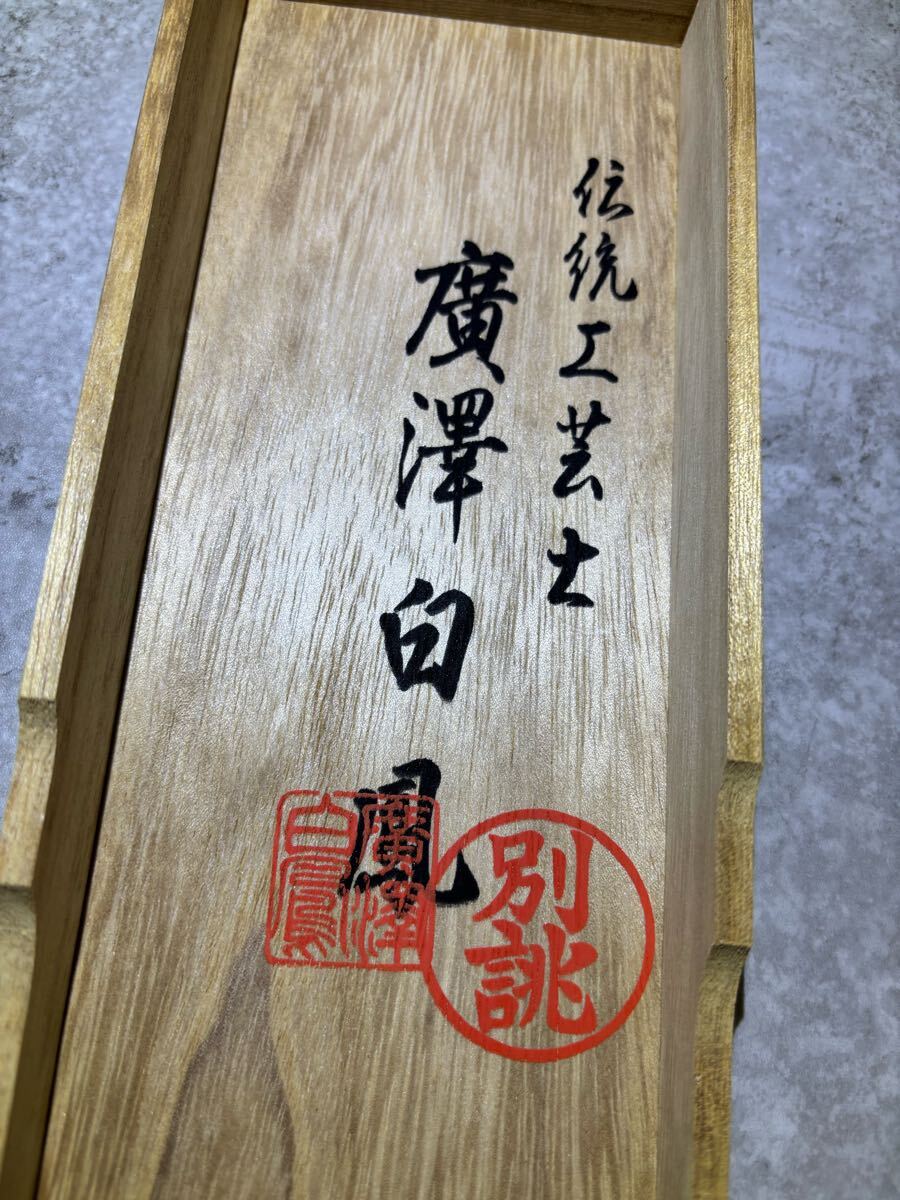 伝統工芸士
廣澤白鳳
廣澤
白鳳
別誂